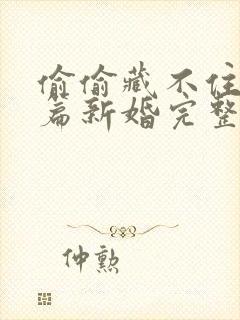 偷偷藏不住
篇新婚完整
仲勲